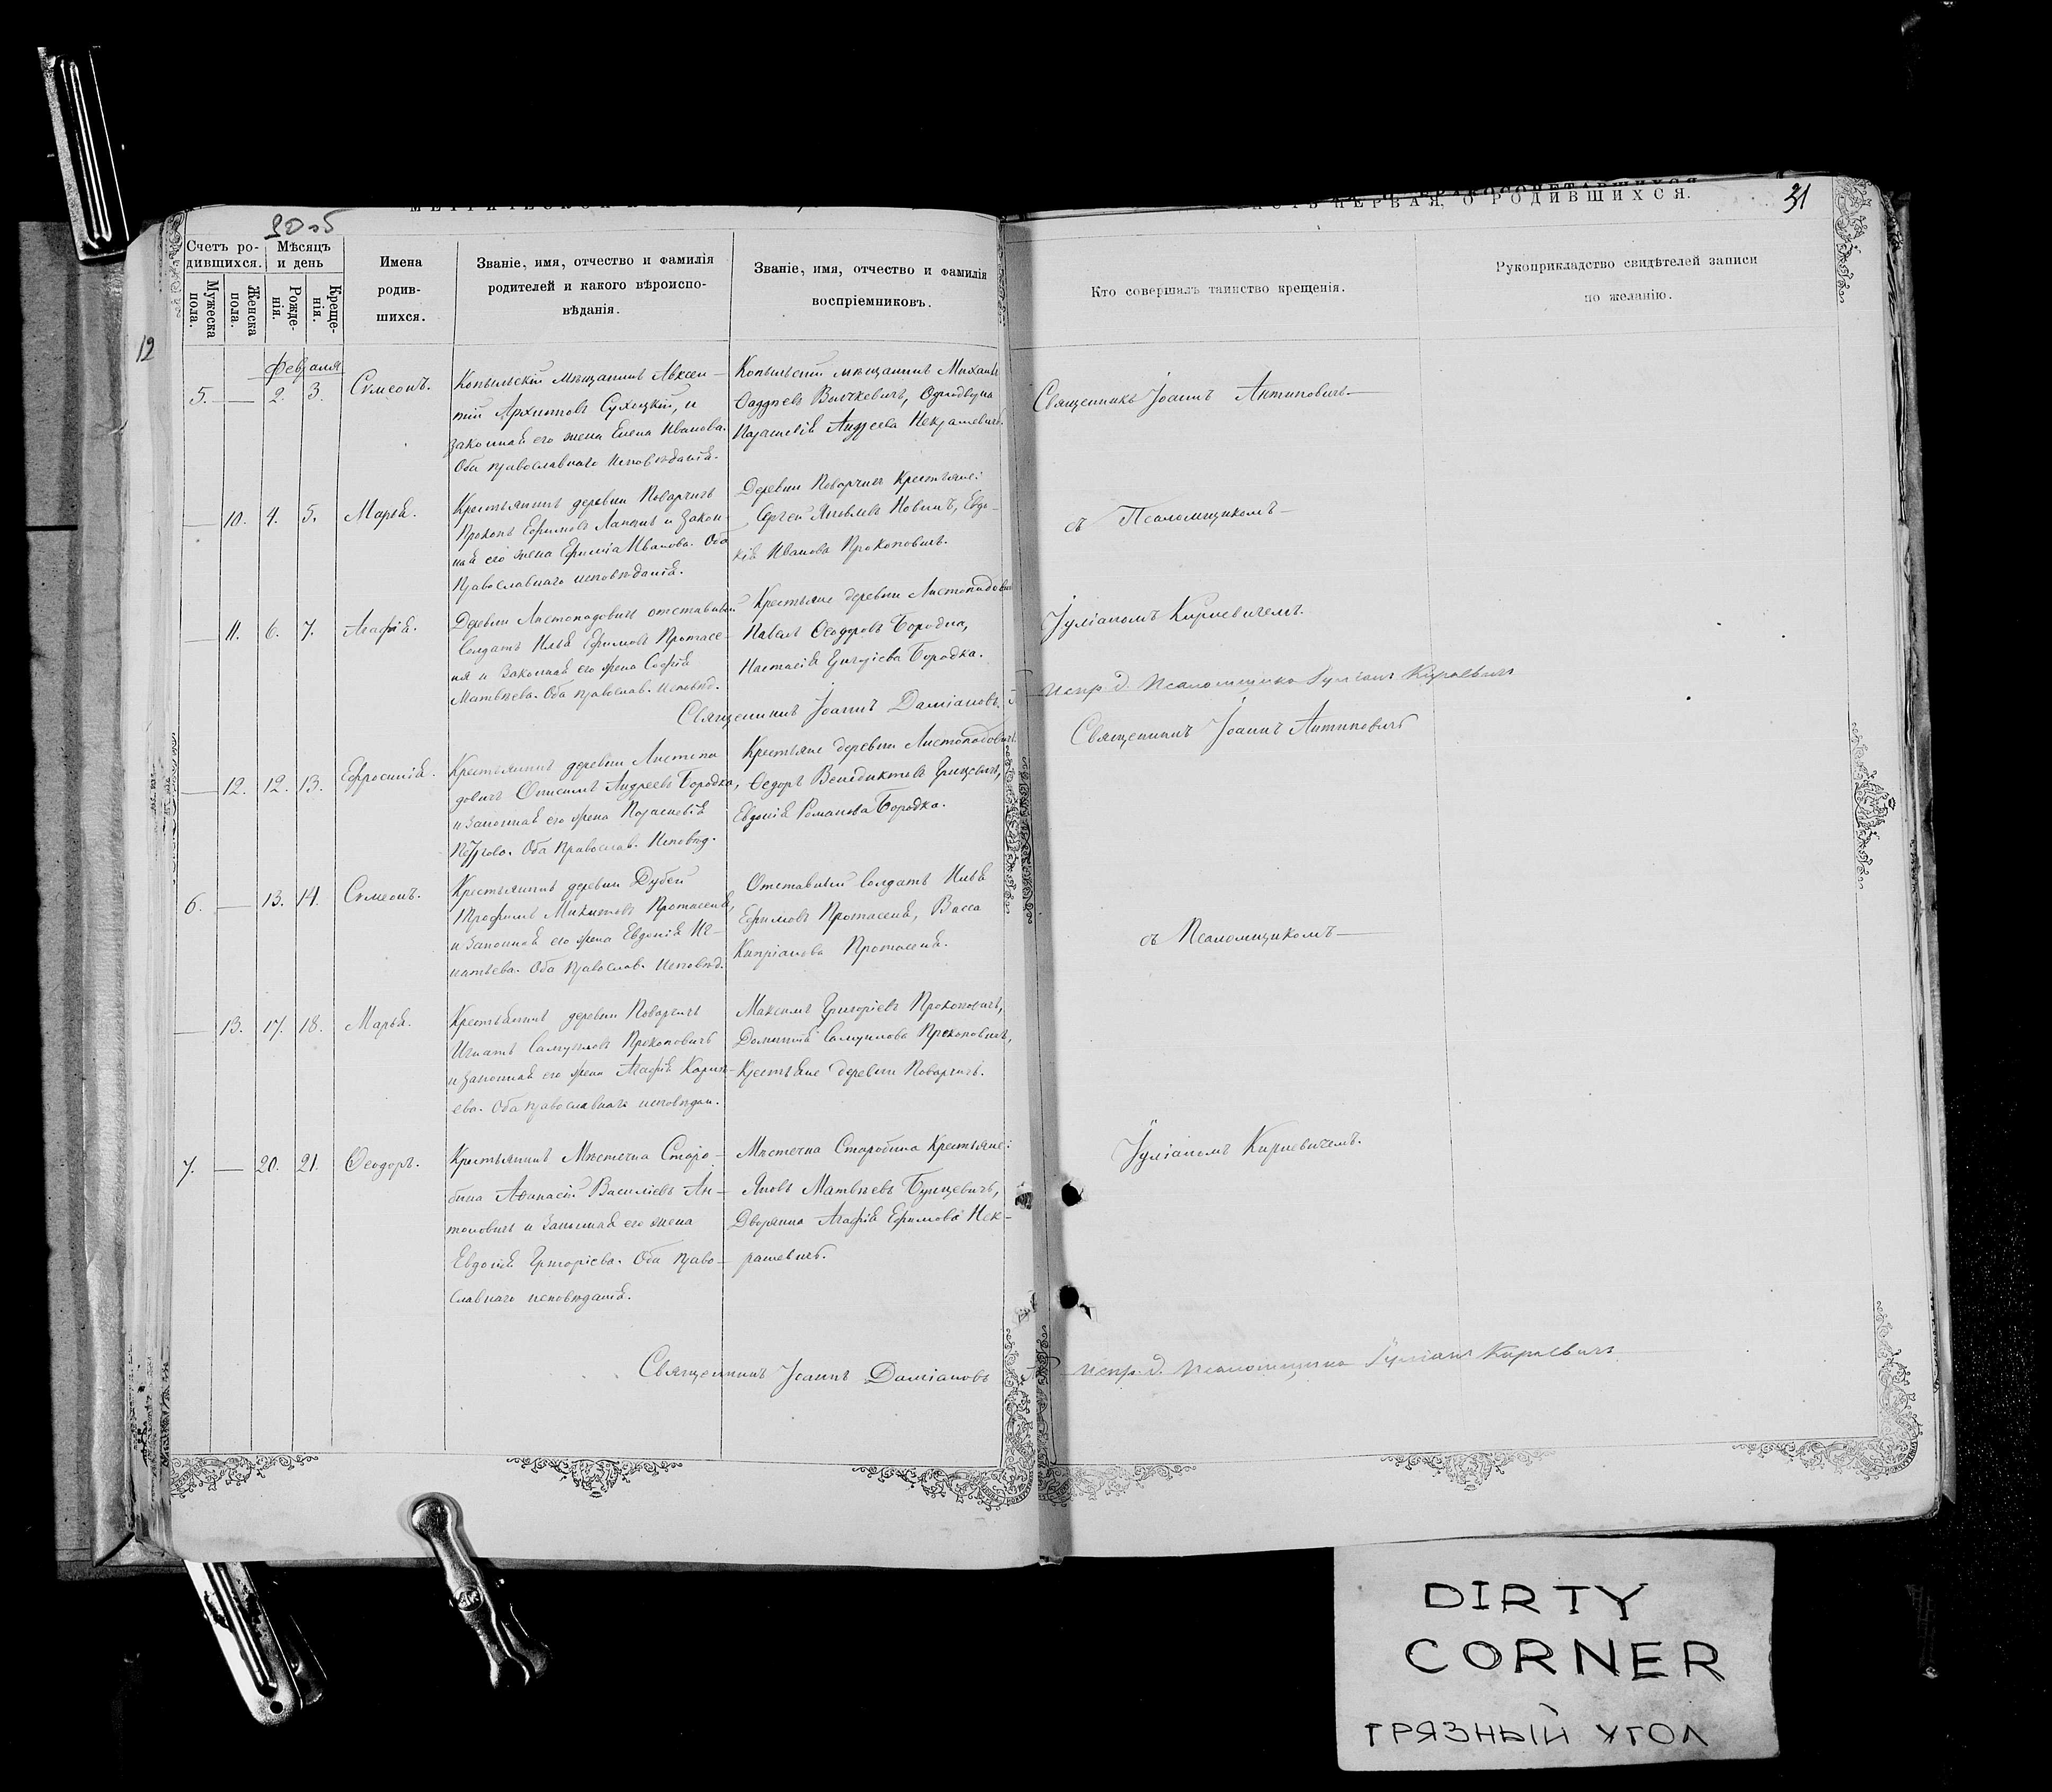 ЧАСТЬ ПЕРВАЯ, О РОДИВШИХСЯ.
31
12
Счетъ ро-
дившихся.
Мѣсяцъ
и день
Мужеска
пола.
Женска
пола.
Рожде-
нія.
Креще-
нія.
Имена
родив-
шихся.
Званіе, имя, отчество и фамилія
родителей и какого вѣроиспо-
вѣданія.
Званіе, имя, отчество и фамилія
воспріемниковъ.
Кто совершалъ таинство крещенія.
Рукоприкладство свидѣтелей записи
по желанію.
Февраля
5. — 2. 3. Симеонъ.
Копыльскій мѣщанинъ Авксен-
тій Архиповъ Сухоцкій, и
законная его жена Елена Иванова.
Оба православнаго исповѣданія.
Копыльскій мѣщанинъ Михаилъ
Ѳаддѣевъ Андреева Некрашевичъ.
Священникъ Іоаннъ Антиповичъ
— 10. 4. 5. Марья.
Крестьянинъ деревни Поварчичъ
Прокопъ Ефимовъ и закон-
ная его жена Иванова. Оба
Православнаго исповѣданія.
Деревни Поварчичъ Крестьяне:
Сергей Яковлевъ Новикъ, Евдо-
кія Иванова Прокоповичъ.
съ Псаломщикомъ
— 11. 6. 7. Агафія.
Деревни Листопадовичъ отставный
Солдатъ Илья Ефимовъ Протасе-
ня и Законная его жена Софія
Матвѣева. Оба православ. исповѣд.
Крестьяне деревни Листопадовичъ
Павелъ Ѳеодоровъ Бородка,
Настасія Григорьева Бородка.
Іуліаномъ Киркевичемъ.
Священникъ Іоаннъ Даміановъ
испр. д. Псаломщика Іуліанъ Киркевичъ
— 12. 12. 13. Ефросинія.
Крестьянинъ деревни Листопа
довичъ Андреевъ Бородка,
и Законная его жена Парасковія
Петрова. Оба Православ. Исповѣд.
Крестьяне деревни Листопадовичъ
Ѳедоръ Венедиктовъ Грицевичъ,
Евдокія Романова Бородка.
Священникъ Іоаннъ Антиповичъ
6. — 13. 14. Симеонъ.
Крестьянинъ деревни Дубей
Трофимъ Никитовъ Протасеня,
и Законная его жена Евдокія Иг-
натьева. Оба Православ. исповѣд.
Отставный Солдатъ Илья
Ефимовъ Протасеня, Васса
Кипріанова Протасеня.
съ Псаломщикомъ
— 13. 17. 18. Марья.
Крестьянинъ деревни Поварчичъ
Игнатъ Самуиловъ Прокоповичъ
и законная его жена Агафія Карпѣ-
ева. Оба православнаго исповѣдан.
Максимъ Григоріевъ Прокоповичъ,
Самуилова Прокоповичъ,
Крестьяне деревни Поварчичъ.
7. — 20. 21. Ѳеодоръ.
Крестьянинъ Мѣстечка Старо-
бина Аѳанасій Василіевъ Ан-
тоновичъ и Законная его жена
Евдокія Григорієва. Оба право-
славнаго исповѣданія.
Мѣстечка Старобина Крестьяне:
Яковъ Матвѣевъ Бунцевичъ,
Дворянка Агафія Ефимова Нек-
рашевичъ.
Іуліаномъ Киркевичемъ.
Священникъ Іоаннъ Даміановъ
испр. д. Псаломщика Іуліанъ Киркевичъ
DIRTY
CORNER
ГРЯЗНЫЙ УГОЛ